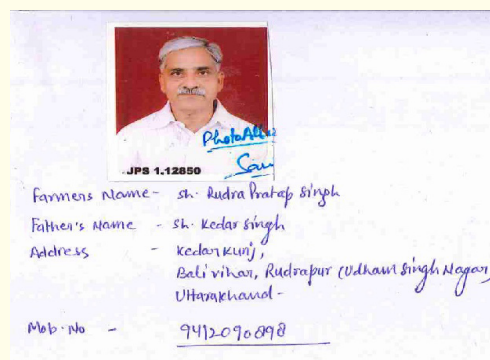 Photo Att
JPS 1.12850
Farmers Name - Sh. Rudra Pratap Singh
Father's Name - Sh. Kedar Singh
Address - Kedar Kunj,
Bali vihar, Rudrapur (Udham Singh Nagar)
Uttarakhand -
Mob. No - 9412090898